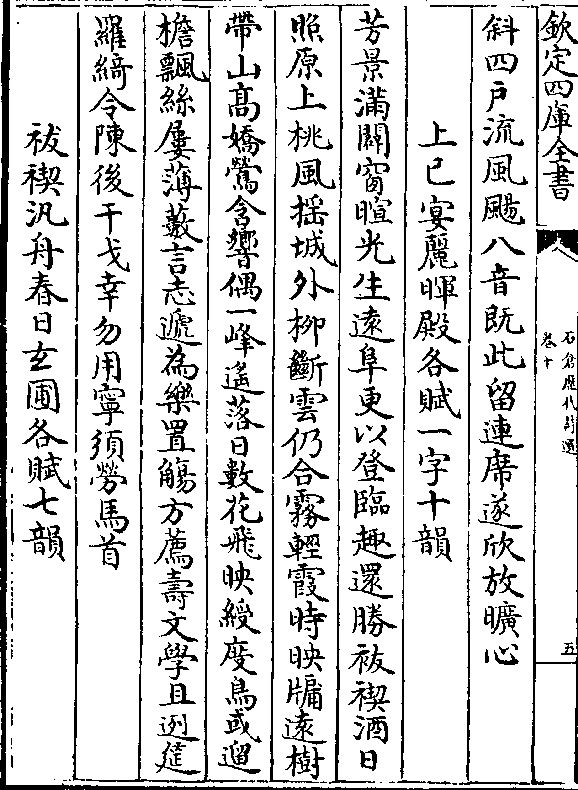 欽定四庫全書
石倉歷代詩選
卷十
五
斜四戶流風颺八音旣此留連席遂欣放曠心
上巳宴麗暉殿各賦一字十韻
芳景滿闢窗暄光生遠阜更以登臨趣還勝祓禊酒日
照原上桃風揺城外柳斷雲仍合霧輕霞時映牖遠樹
帶山髙嬌鶯含響偶一峰遙落日數花飛映綬度鳥或遛
檐飄絲屢薄藪言志遞為樂置觴方薦壽文學且迾筵
羅綺令陳後干戈幸勿用寧須勞馬首
祓禊汎舟春日𤣥圃各賦七韻